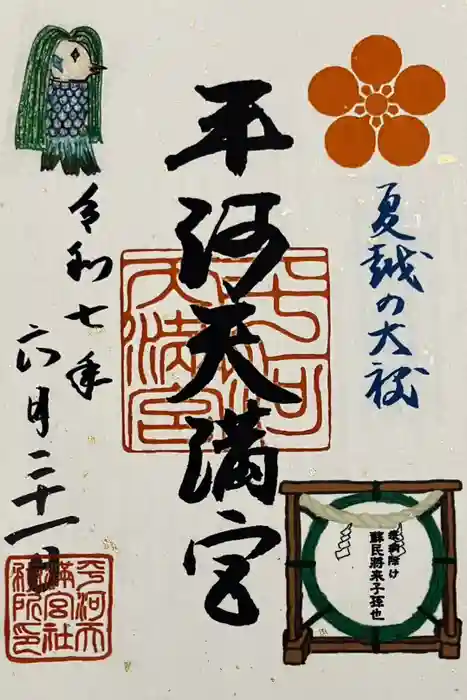 夏越の大祓
平河天満宮
令和七年
六月二十一日
疫病除け
蘇民将来子孫也
平河天
満宮社
務所印